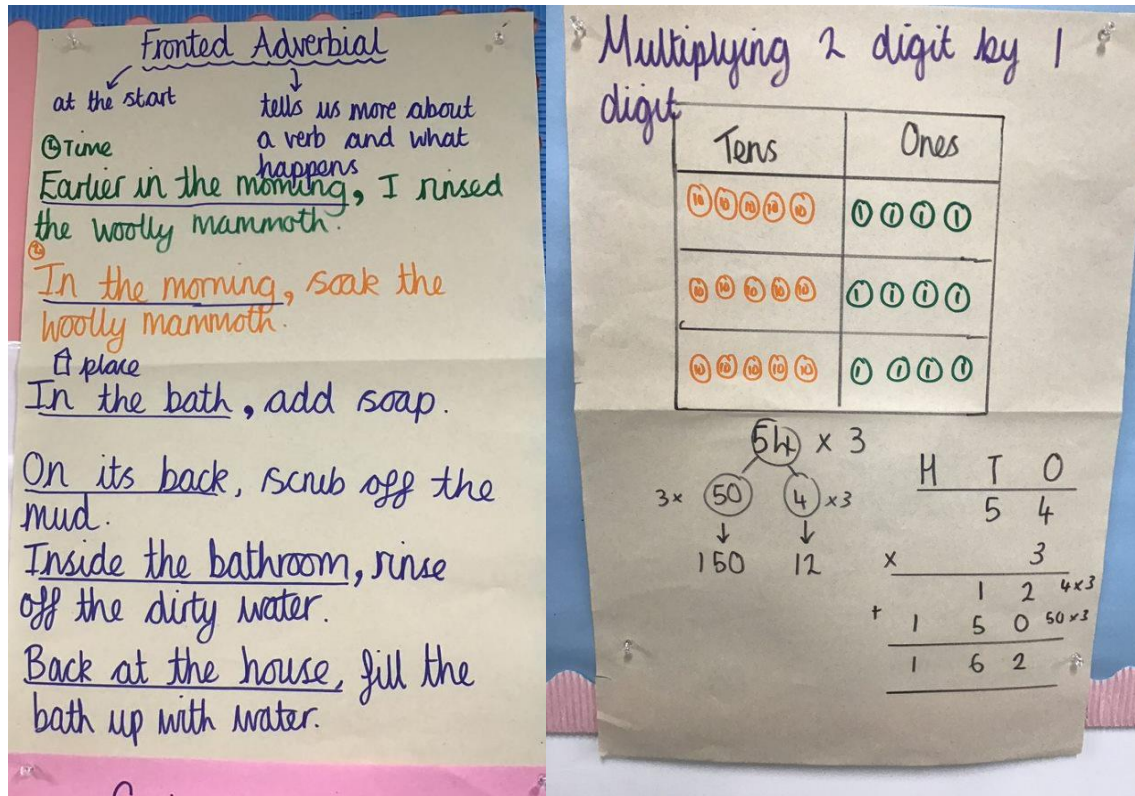 Fronted Adverbial
at the start
tells us more about
a verb and what
happens
Time
Earlier in the morning, I rinsed
the woolly mammoth.
In the morning, soak the
woolly mammoth.
place
In the bath, add soap.
On its back, scrub off the
mud.
Inside the bathroom, rinse
off the dirty water.
Back at the house, fill the
bath up with water.
Multiplying 2 digit by 1
digit
Tens Ones
10 10 10 10 10 1 1 1 1
10 10 10 10 10 1 1 1 1
10 10 10 10 10 1 1 1 1
54 x 3
3x 50 4 x3
150 12
H T O
5 4
x 3
1 2 4x3
+ 1 5 0 50x3
1 6 2